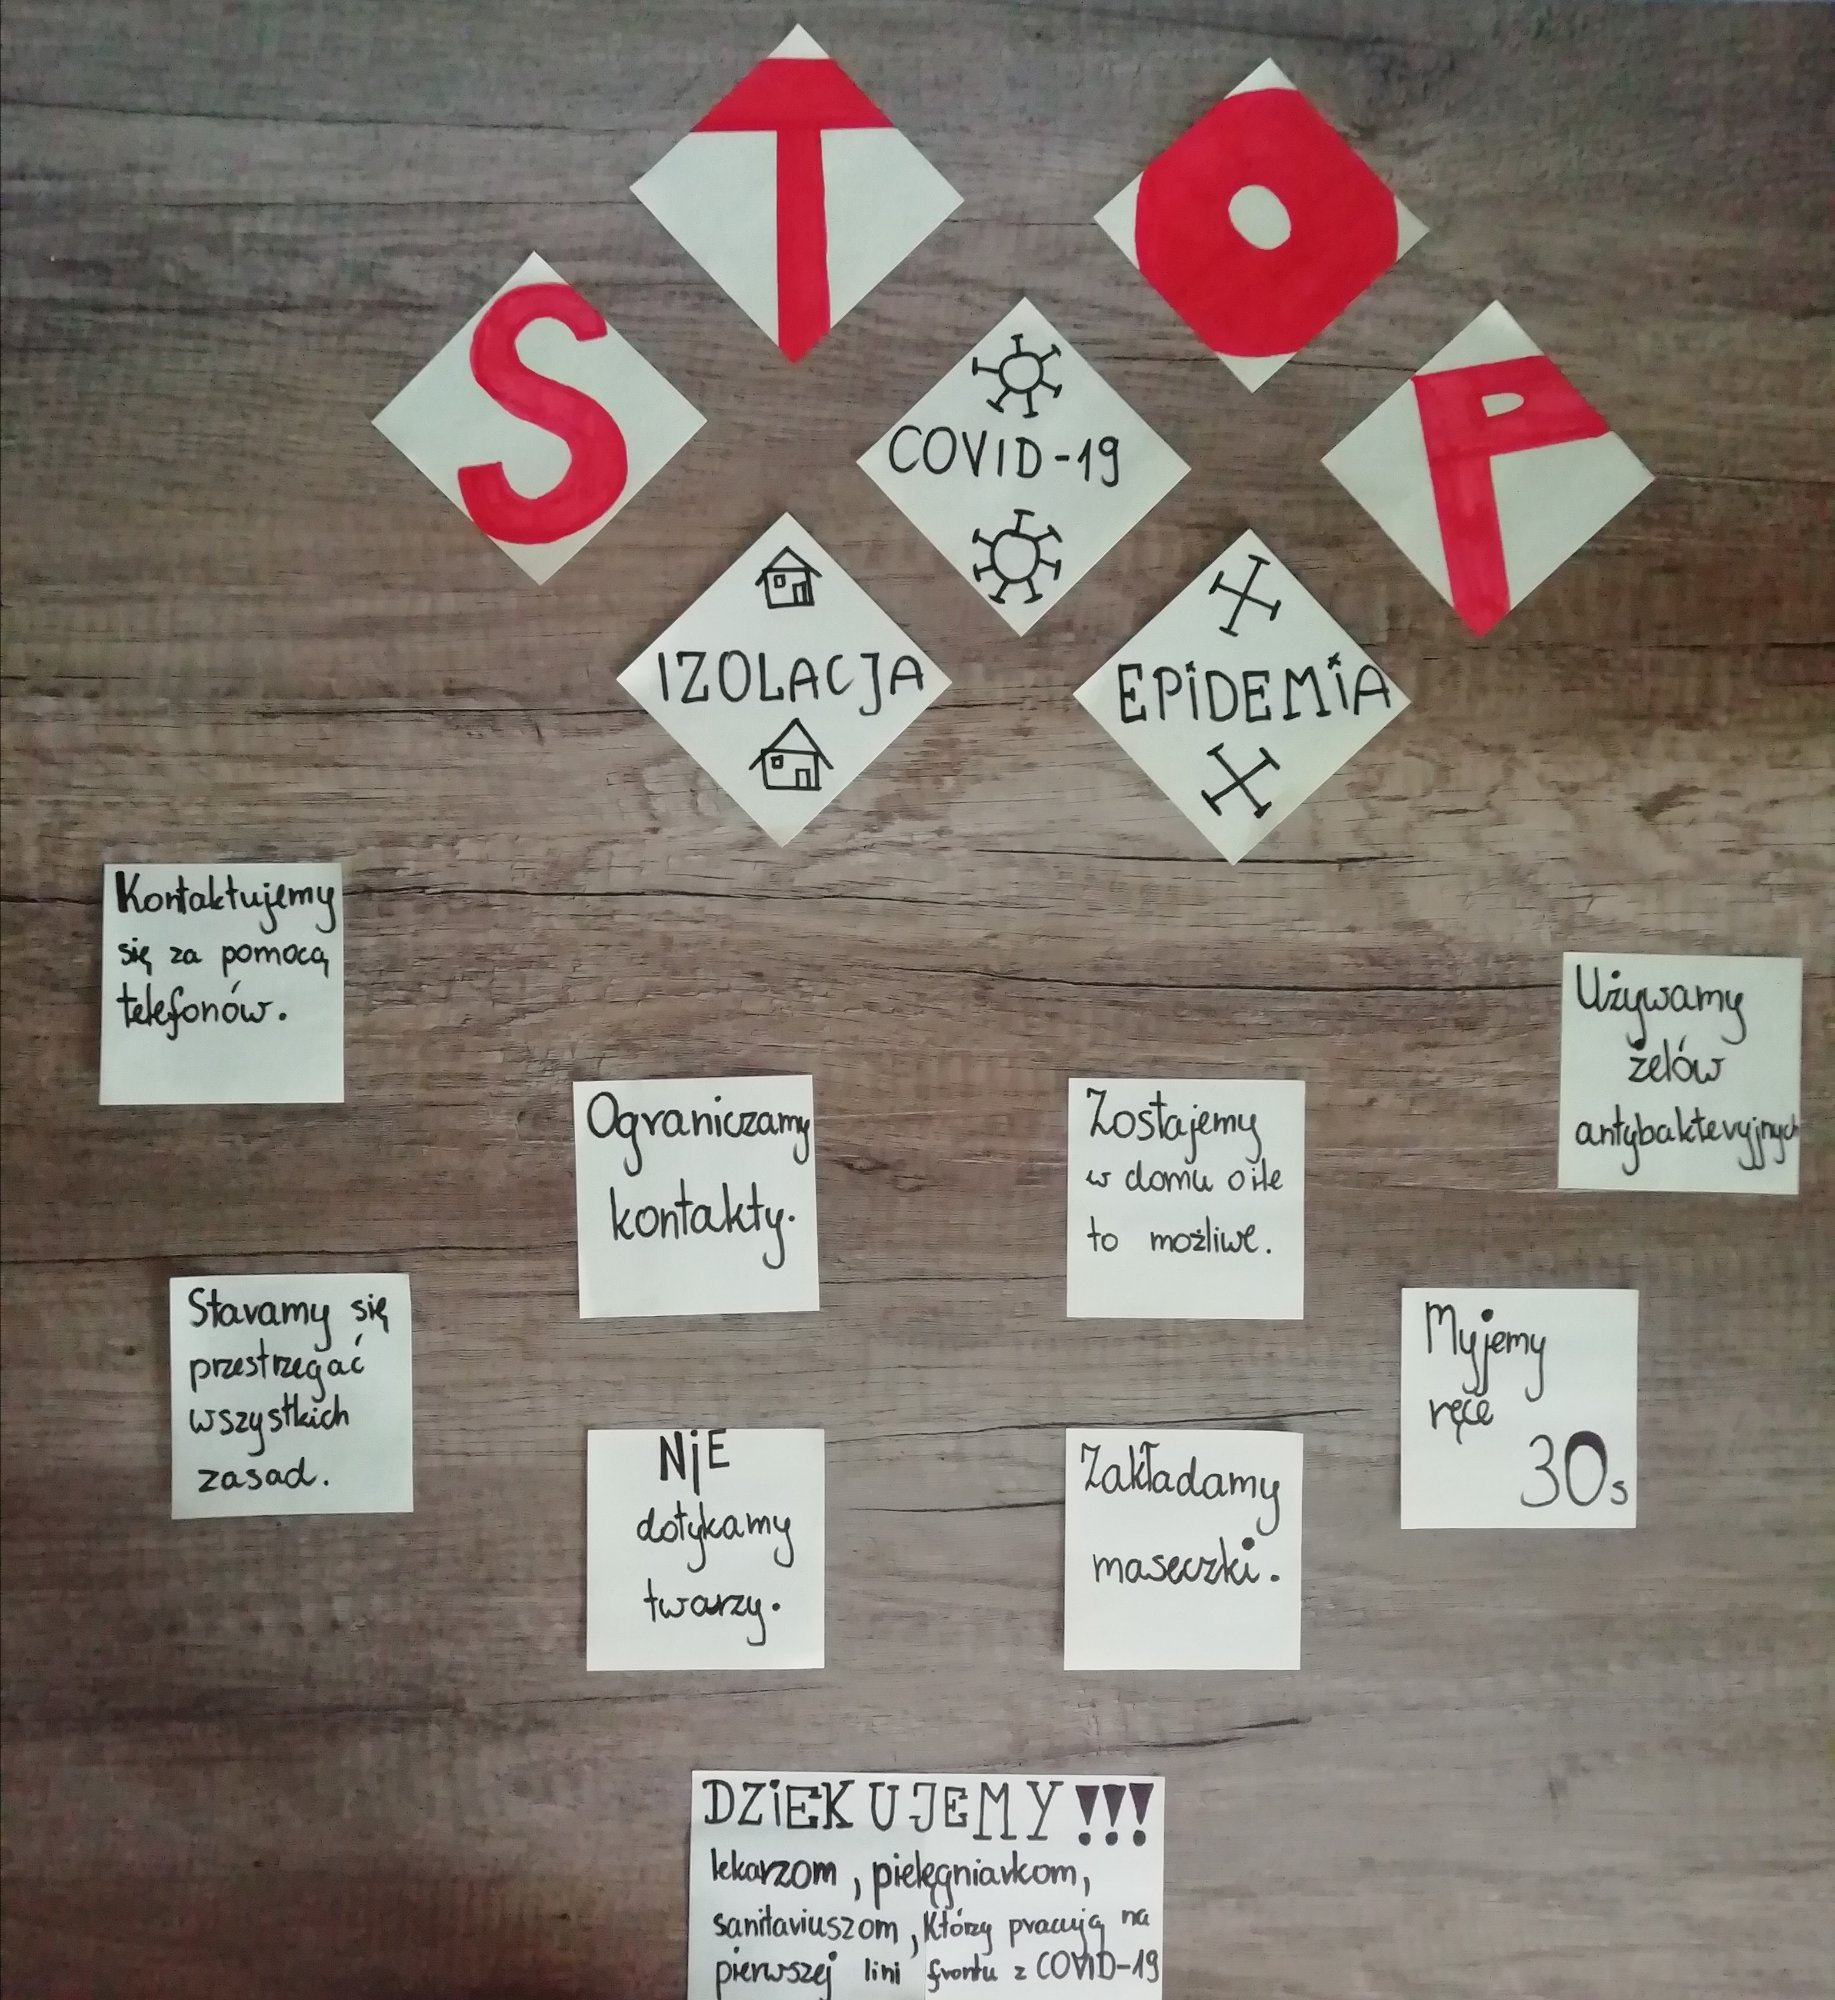 STOP
COVID-19
IZOLACJA
EPIDEMIA
Kontaktujemy
się za pomocą
telefonów.
Ograniczamy
kontakty.
Zostajemy
w domu o ile
to możliwe.
Używamy
żelów
antybakteryjnych
Staramy się
przestrzegać
wszystkich
zasad.
NIE
dotykamy
twarzy.
Zakładamy
maseczki.
Myjemy
ręce
30s
DZIEKUJEMY!!!
lekarzom, pielęgniarkom,
sanitariuszom, którzy pracują na
pierwszej lini frontu z COVID-19